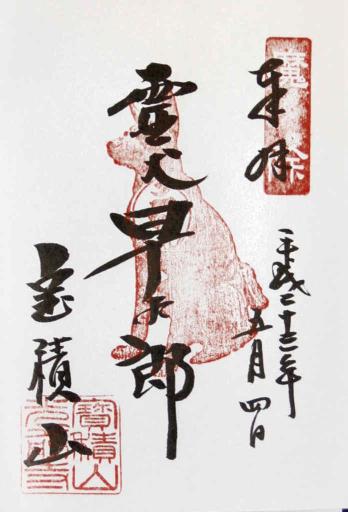 魔除
奉拝
平成二十三年
五月四日
霊犬早太郎
宝積山
寶積山
光前寺